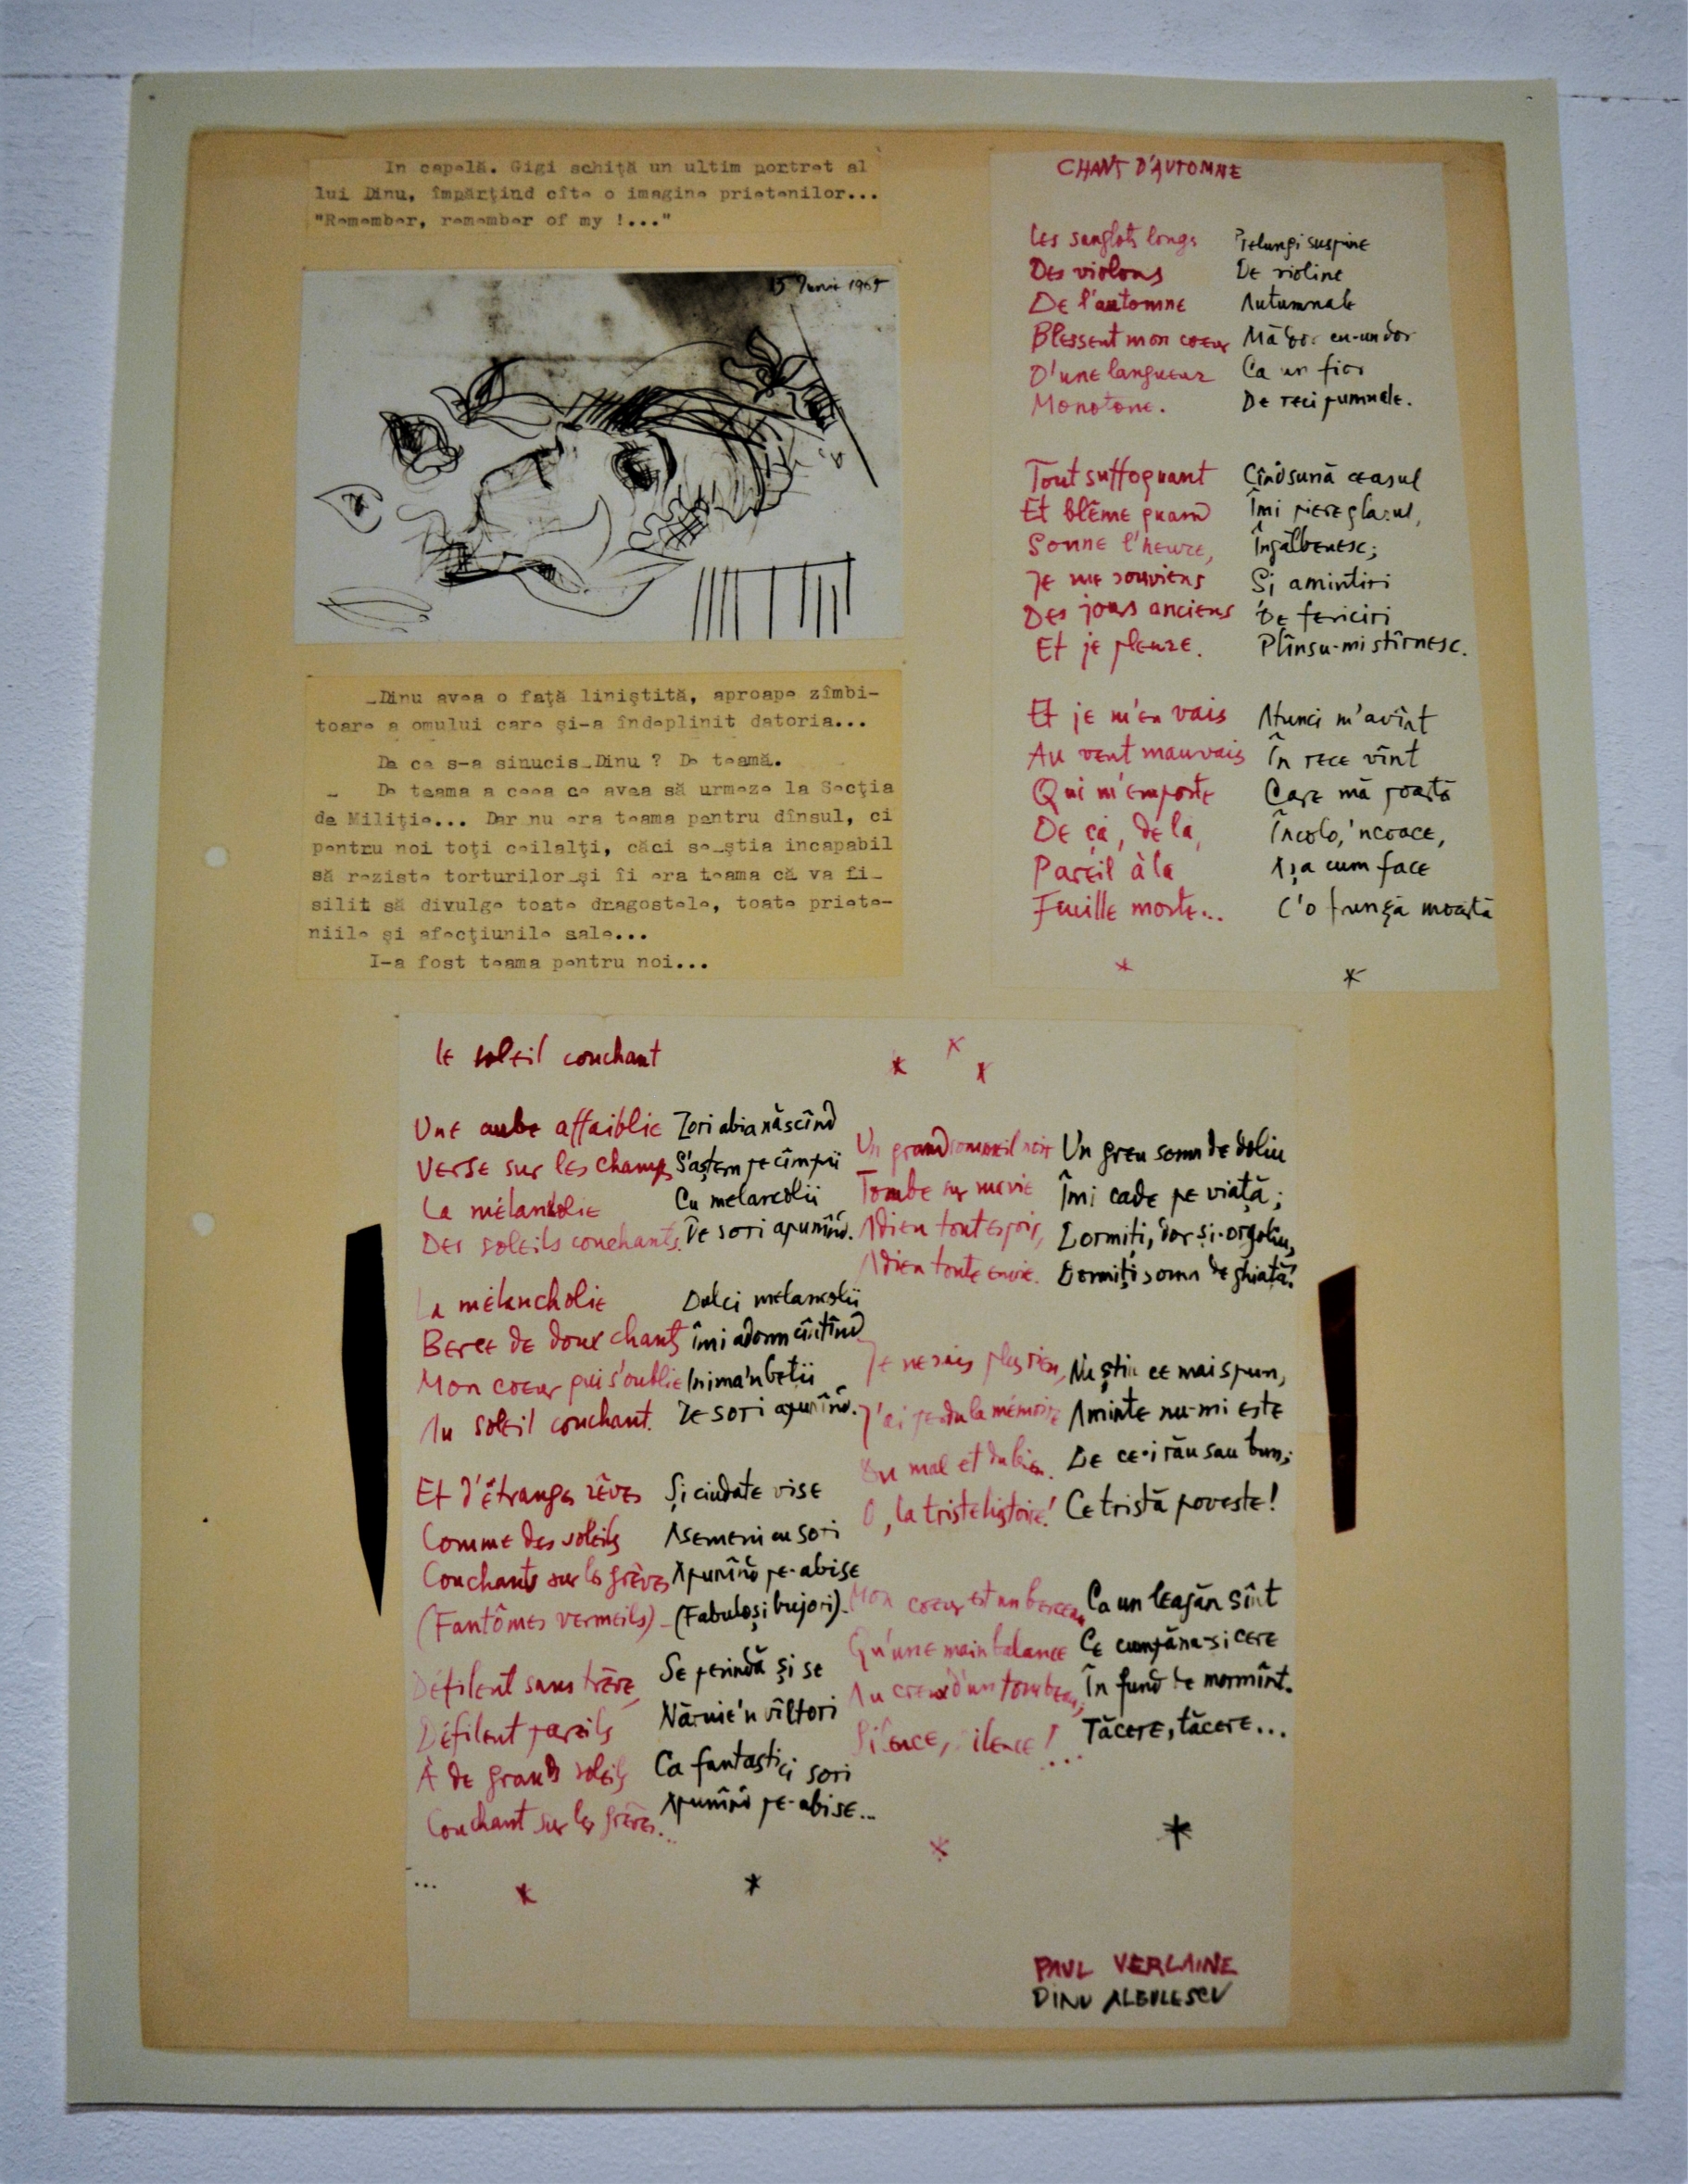 In capelă. Gigi schiţă un ultim portret al
lui Dinu, împărţind cîte o imagine prietenilor...
"Remember, remember of my !..."
15 Iunie 1965
_Dinu avea o faţă liniştită, aproape zîmbi-
toare a omului care şi-a îndeplinit datoria...
De ce s-a sinucis_Dinu ? De teamă.
_ De teama a ceea ce avea să urmeze la Secţia
de Miliţie... Dar nu era teama pentru dînsul, ci
pentru noi toţi ceilalţi, căci se_ştia incapabil
să reziste torturilor_şi îi era teama că va fi_
silit să divulge toate dragostele, toate priete-
niile şi afecţiunile sale...
I-a fost teama pentru noi...
CHANT D'AUTOMNE
Les sanglots longs
Des violons
De l'automne
Blessent mon coeur
D'une langueur
Monotone.
Tout suffoquant
Et blême quand
Sonne l'heure,
Je me souviens
Des jours anciens
Et je pleure.
Et je m'en vais
Au vent mauvais
Qui m'emporte
De ça, de là,
Pareil à la
Feuille morte...
*
Prelungi suspine
De violine
Autumnale
Mă dor cu-un dor
Ca un fior
De reci pumnale.
Cînd sună ceasul
Îmi piere glasul,
Îngălbenesc;
Şi amintiri
De fericiri
Plînsu-mi stîrnesc.
Atunci m'avînt
În rece vînt
Care mă poartă
Încolo,'ncoace,
Aşa cum face
C'o frunză moartă
*
Le soleil couchant
Une aube affaiblie
Verse sur les champs
La mélancolie
Des soleils couchants.
La mélancholie
Berce de doux chants
Mon coeur qui s'oublie
Au soleil couchant.
Et d'étranges rêves
Comme des soleils
Couchants sur les grèves
(Fantômes vermeils)-
Défilent sans trève,
Défilent pareils
À de grands soleils
Couchant sur les grèves...
...
*
Zori abia născînd
S'aştern pe cîmpii
Cu melancolii
De sori apunînd.
Dulci melancolii
Îmi adorm cîntînd
Inima'n beţii
De sori apunînd.
Şi ciudate vise
Asemeni cu sori
Apunînd pe-abise
(Fabuloşi bujori)-
Se perindă şi se
Nărui'n vîltori
Ca fantastici sori
Apunînd pe-abise...
*
* * *
Un grand sommeil noir
Tombe sur ma vie
Adieu tout espoir,
Adieu toute envie.
Je ne sais plus rien,
J'ai perdu la mémoire
Du mal et du bien.
O, la triste histoire!
Mon coeur est un berceau
Qu'une main balance
Au creux d'un tombeau;
Silence, silence!...
*
Un greu somn de doliu
Îmi cade pe viaţă;
Dormiţi, dor şi-orgoliu,
Dormiţi somn de ghiaţă!
Nu ştiu ce mai spun,
Aminte nu-mi este
De ce-i rău sau bun;
Ce tristă poveste!
Ca un leagăn sînt
Ce cumpăna-şi cere
În fund de mormînt.
Tăcere, tăcere...
*
PAUL VERLAINE
DINU ALBULESCU